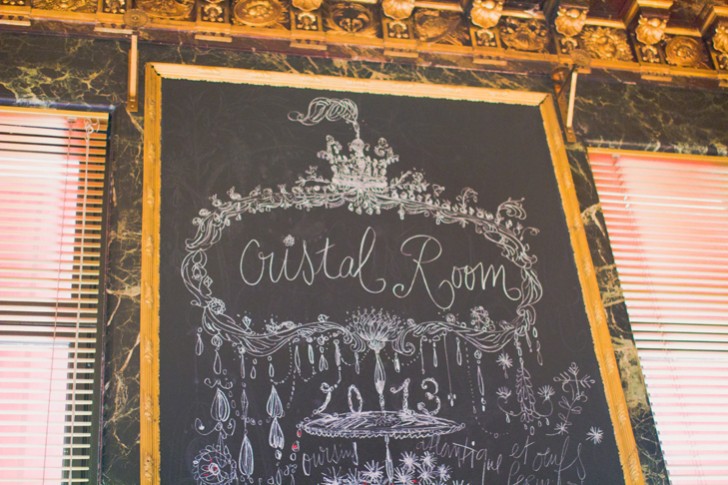 Cristal Room
2013
oursin atlantique et oeufs